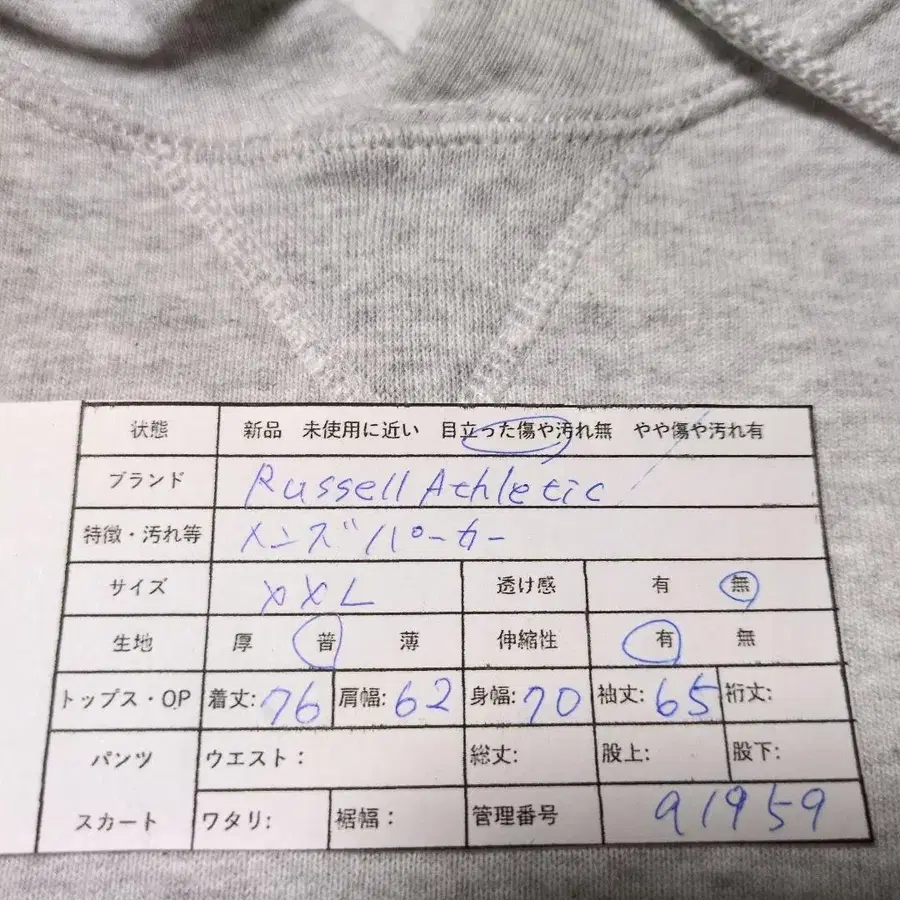 状態 新品 未使用に近い 目立った傷や汚れ無 やや傷や汚れ有
ブランド Russell Athletic
特徴・汚れ等 メンズパーカー
サイズ XXL 透け感 有 無
生地 厚 普 薄 伸縮性 有 無
トップス・OP 着丈: 76 肩幅: 62 身幅: 70 袖丈: 65 裄丈:
パンツ ウエスト: 総丈: 股上: 股下:
スカート ワタリ: 裾幅: 管理番号 91959